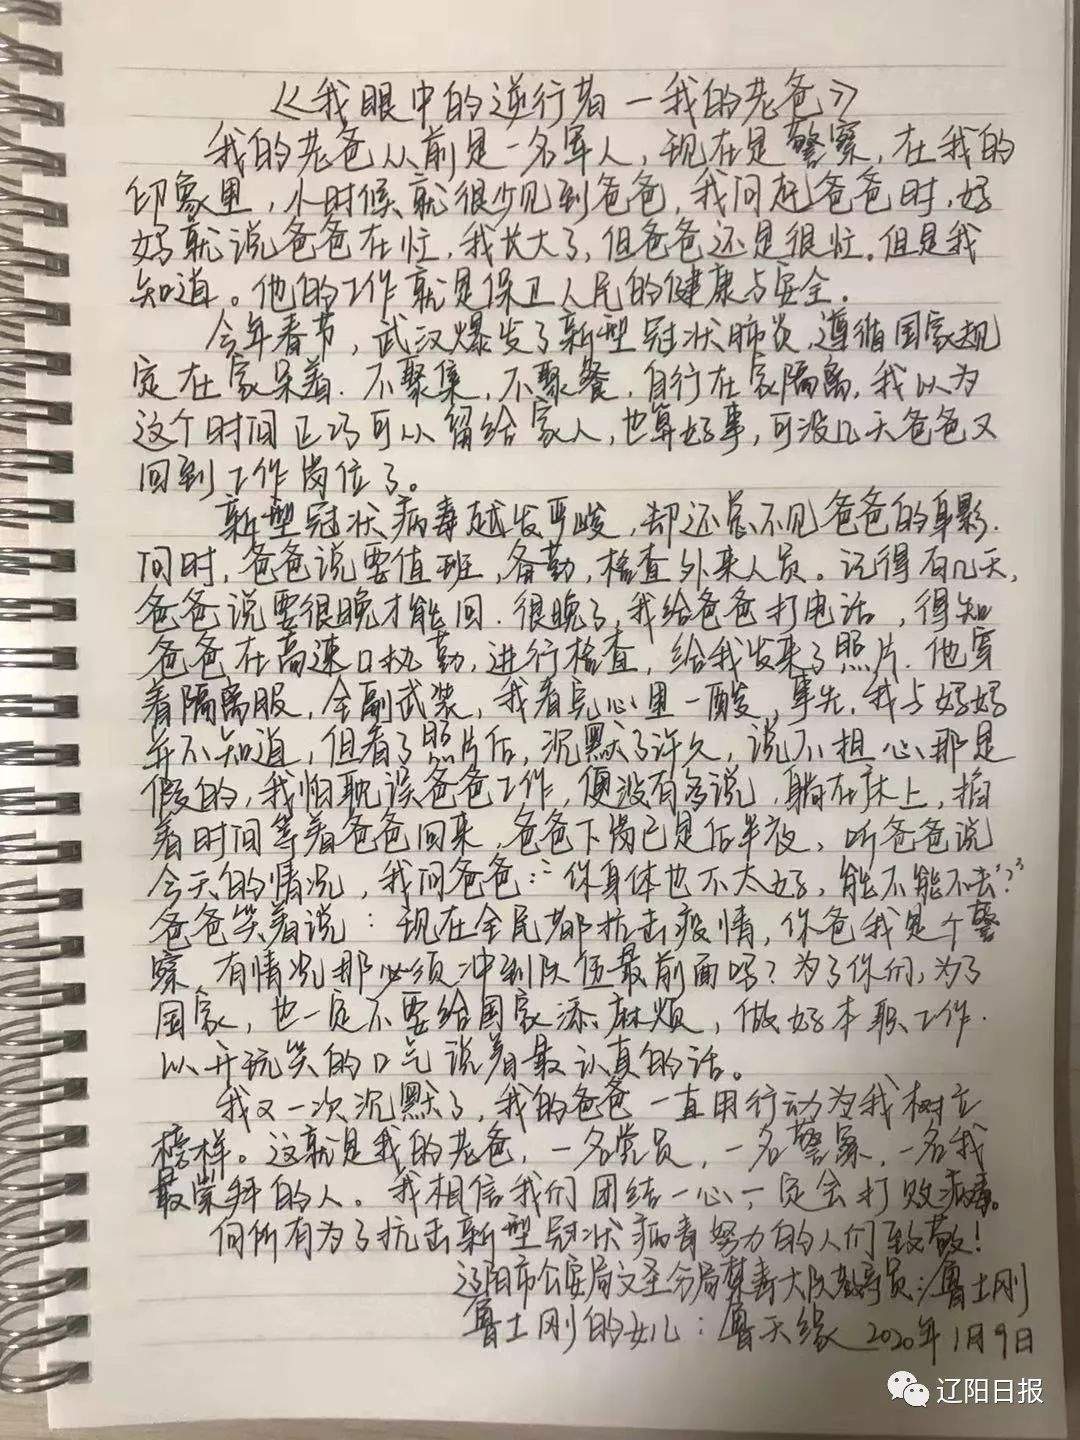 《我眼中的逆行者—我的老爸》
我的老爸从前是一名军人，现在是警察，在我的
印象里，小时候就很少见到爸爸，我问起爸爸时，妈
妈就说爸爸在忙，我长大了，但爸爸还是很忙。但是我
知道。他的工作就是保卫人民的健康与安全。
今年春节，武汉爆发了新型冠状肺炎，遵循国家规
定在家呆着.不聚集，不聚餐，自行在家隔离，我以为
这个时间正巧可以留给家人，也算好事，可没几天爸爸又
回到工作岗位了。
新型冠状病毒越发严峻，却还总不见爸爸的身影.
问时，爸爸说要值班，备勤，检查外来人员。记得有几天，
爸爸说要很晚才能回.很晚了，我给爸爸打电话，得知
爸爸在高速口执勤，进行检查，给我发来了照片.他穿
着隔离服，全副武装，我看完心里一酸，事先，我与妈妈
并不知道，但看了照片后，沉默了许久，说不担心那是
假的，我怕耽误爸爸工作，便没有多说，躺在床上，掐
着时间等着爸爸回来，爸爸下岗已是后半夜，听爸爸说
今天的情况，我问爸爸：“你身体也不太好，能不能不去？”
爸爸笑着说：现在全民都抗击疫情，你爸我是个警
察 有情况那必须冲到队伍最前面吗？为了你们，为了
国家，也一定不要给国家添麻烦，做好本职工作.
以开玩笑的口气说着最认真的话。
我又一次沉默了，我的爸爸一直用行动为我树立
榜样。这就是我的老爸，一名党员，一名警察，一名我
最崇拜的人。我相信我们团结一心，一定会打败病毒。
向所有为了抗击新型冠状病毒努力的人们致敬！
辽阳市公安局文圣分局禁毒大队教导员：鲁士刚
鲁士刚的女儿：鲁天缘 2020年1月9日
辽阳日报